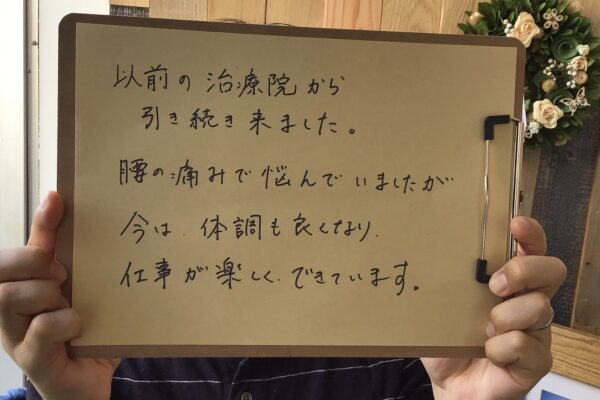 以前の治療院から
引き続き来ました。
腰の痛みで悩んでいましたが
今は、体調も良くなり、
仕事が楽しく、できています。